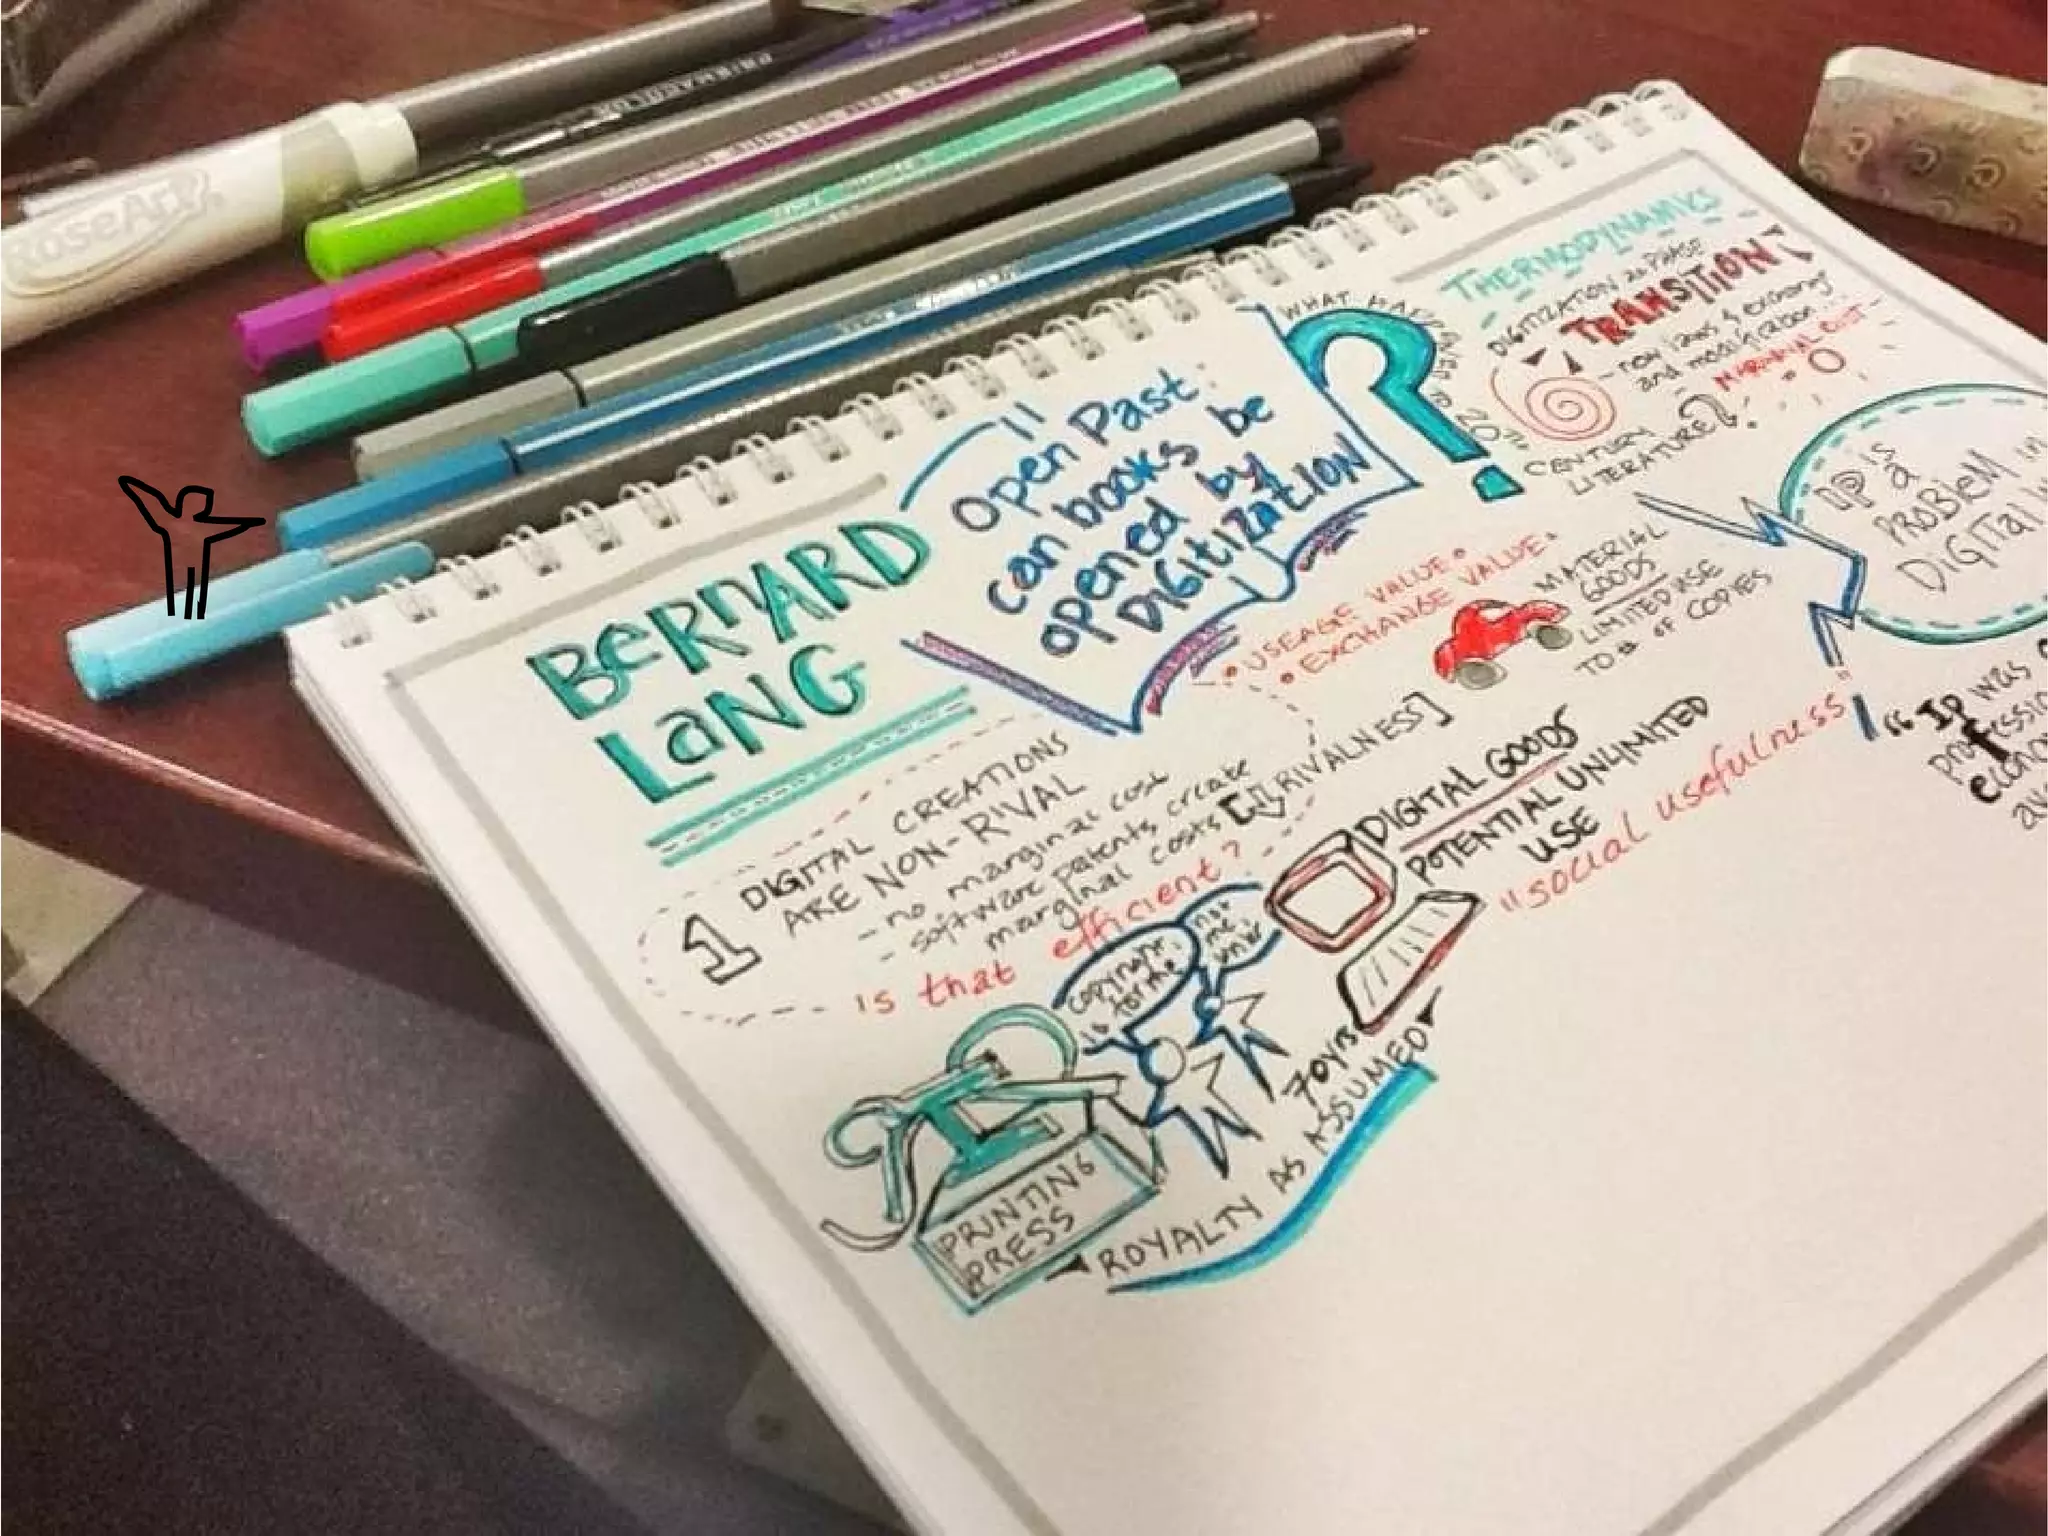 RoseArt
PRISMACOLOR
BERNARD
LANG
Open Past
can books be
opened by
DIGITIZATION
WHAT HAPPENED TO 20TH
CENTURY
LITERATURE?
THERMODYNAMIKS
DIGITIZATION as PHASE
TRANSITION
- new laws of economy
and modification
- MARGINAL COST -
0
IP is
a
PROBLEM in
DIGITAl
• USEAGE VALUE •
• EXCHANGE VALUE •
MATERIAL
GOODS
LIMITED USE
TO # OF COPIES
1
DIGITAL CREATIONS
ARE NON-RIVAL
- no marginal cost
- software patents create
marginal costs
is that efficient?
[RIVALNESS]
DIGITAL GOODS
POTENTIAL UNLIMITED
USE
"social usefulness"
"IP was
of
copyright
is for me
not
me
PRINTING
PRESS
70yrs
ROYALTY AS ASSUMED